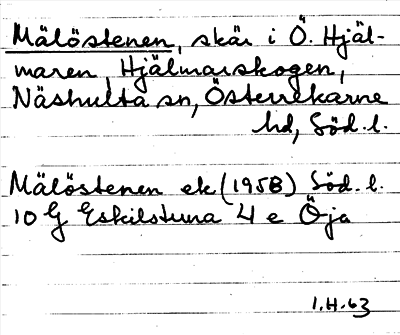 Mälöstenen, skär i Ö. Hjäl-
maren, Hjälmarskogen,
Näshulta sn, Österrekarne
hd, Söd. l.
Mälöstenen ek (1958) Söd. l.
10 G Eskilstuna 4 e Öja
1.H.63